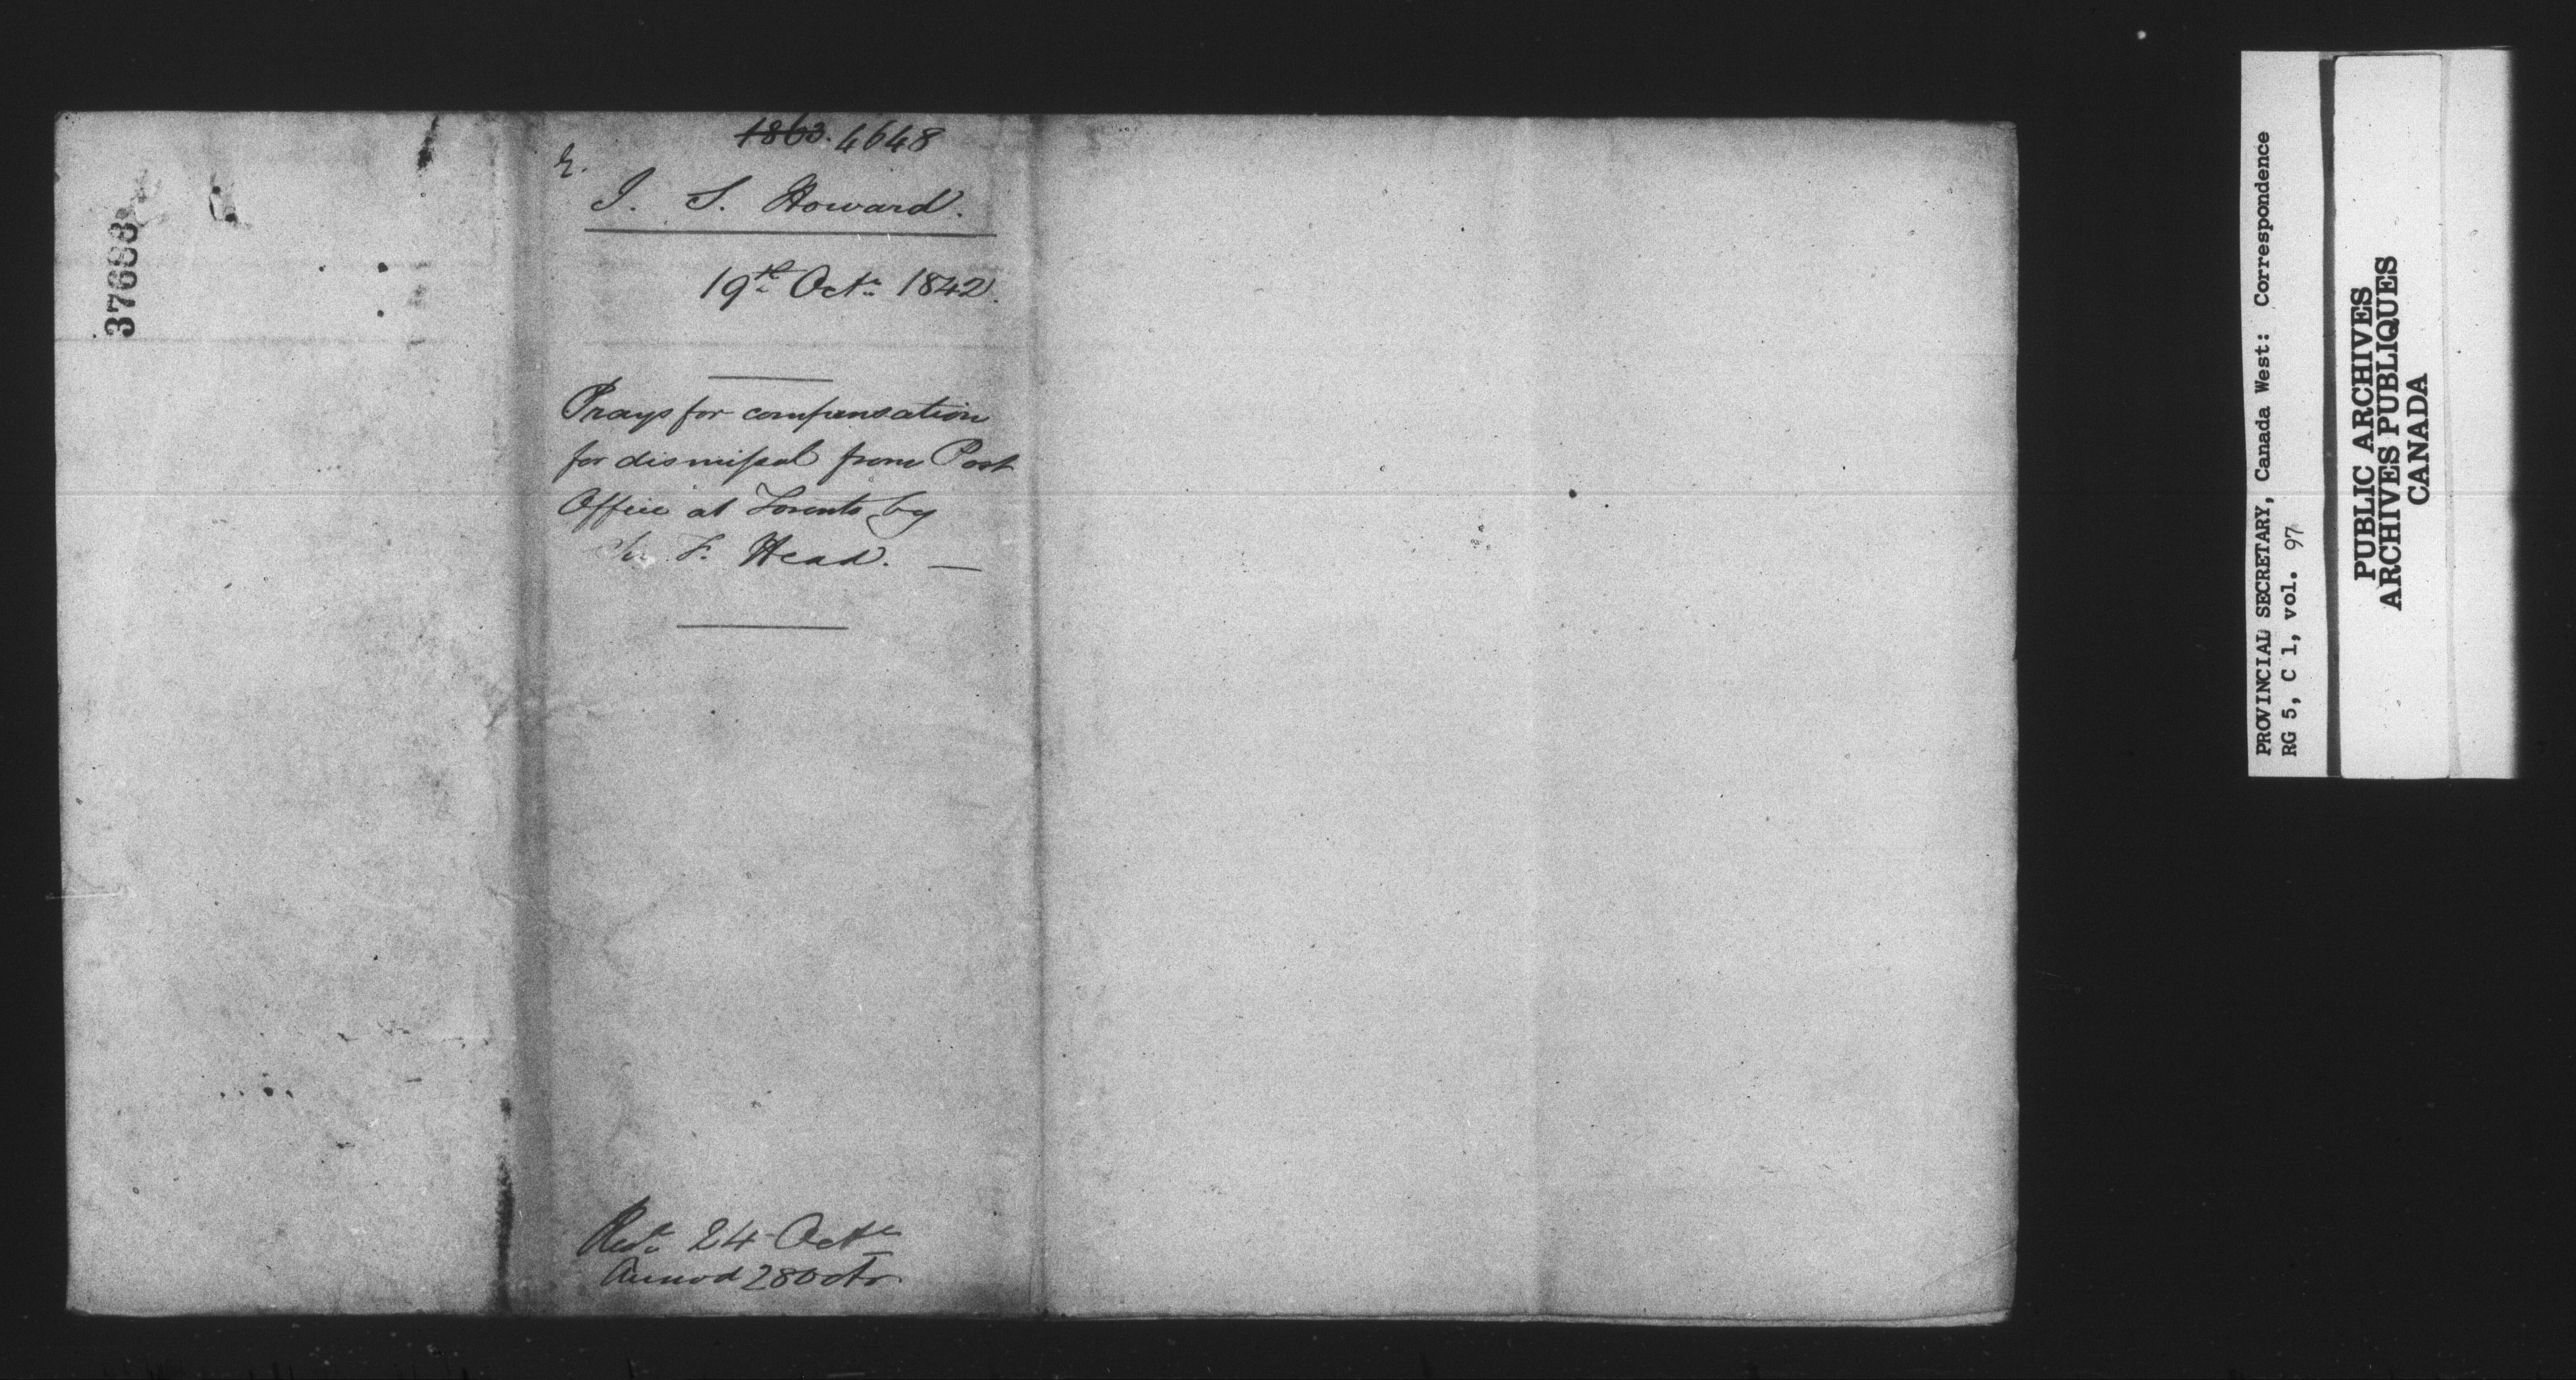 37683
1863. 4648
J. S. Howard.
19th Octr 1842.
Prays for compensation
for dismissal from Post
Office at Toronto by
Sir F. Head. —
Recd 24 Octr
Answd 28 Octr.
PROVINCIAL SECRETARY, Canada West: Correspondence
RG 5, C 1, vol. 97
PUBLIC ARCHIVES
ARCHIVES PUBLIQUES
CANADA